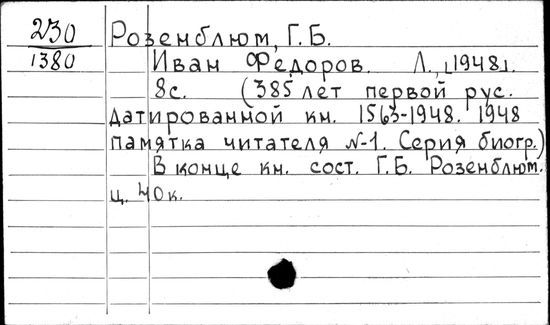 230
1380
Розенблюм, Г.Б.
Иван Федоров. Л., [1948].
8с. (385 лет первой рус.
датированной кн. 1563-1948. 1948
памятка читателя №-1. Серия биогр.)
В конце кн. сост. Г.Б. Розенблюм.
ц. 40к.